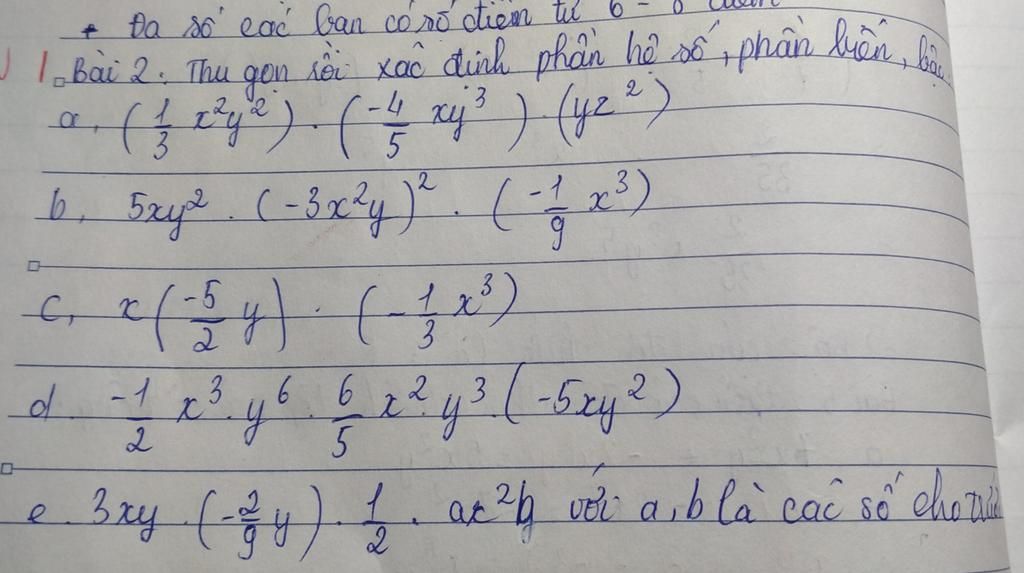 + Đa số các bạn có số điểm từ 6 - 8
1. Bài 2. Thu gọn rồi xác định phần hệ số, phần biến, bậc
a, (1/3 x²y²) . (-4/5 xy³) . (yz²)
b, 5xy² . (-3x²y)² . (-1/9 x³)
c, x(-5/2 y) . (-1/3 x³)
d. -1/2 x³. y⁶ . 6/5 x². y³ (-5xy²)
e. 3xy . (-2/9 y) . 1/2 . ax²b với a, b là các số cho